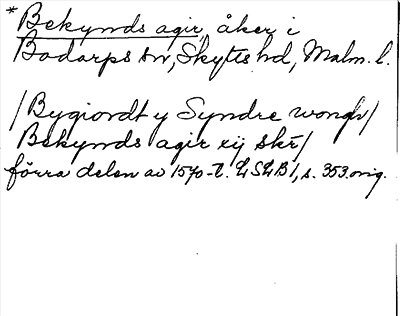 *Bekynds agir, åker i
Bodarps sn, Skytts hd, Malm. l.
/Bygiordt y Syndre wongh/
Bekynds agir xij skr/
förra delen av 1570-t. LSLB 1, s. 353. orig.